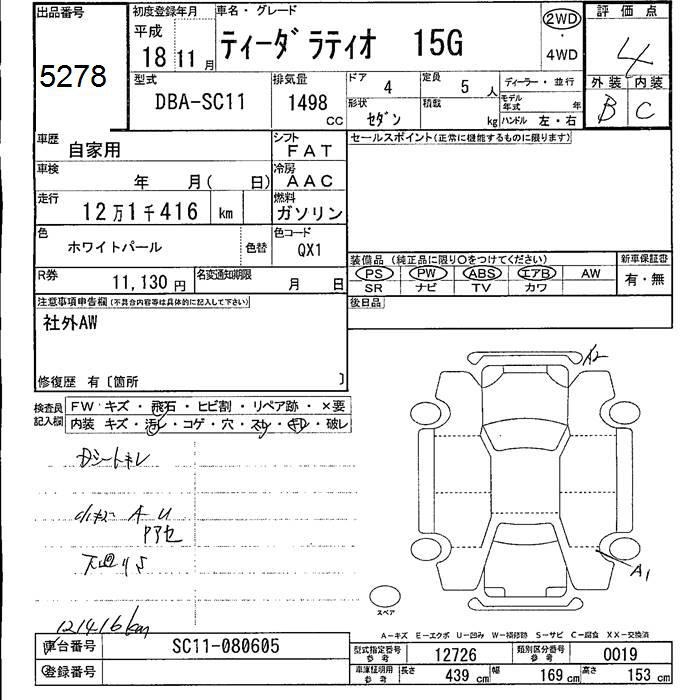 出品番号
5278
初度登録年月
平成
18 11 月
車名・グレード
ティーダ ラティオ 15G
2WD
・
4WD
評価点
4
外装 内装
B C
型式
DBA-SC11
排気量
1498 CC
ドア
4
定員
5 人
形状
セダン
積載
kg
ディーラー・並行
モデル年式 年
ハンドル 左・右
車歴
自家用
シフト
FAT
車検
年 月( 日)
冷房
AAC
走行
12万1千416 km
燃料
ガソリン
色
ホワイトパール
色替
色コード
QX1
R券
11,130 円
名変通知期限
月 日
セールスポイント(正常に機能するものに限ります)
装備品(純正品に限り○をつけてください)
PS PW ABS エアB AW
SR ナビ TV カワ
新車保証書
有・無
後日品
注意事項申告欄(不具合内容等は具体的に記入して下さい)
社外AW
修復歴 有〔箇所 〕
検査員記入欄
FW キズ・飛石・ヒビ割・リペア跡・×要
内装 キズ・汚レ・コゲ・穴・スレ・キレ・破レ
Dシートキレ
A-U
下廻りS
121416km
A2
A1
スペア
A-キズ E-エクボ U-凹み W-補修跡 S-サビ C-腐食 XX-交換済
車台番号
SC11-080605
登録番号
型式指定番号 参考
12726
類別区分番号 参考
0019
車庫証明用 参考
長さ 439 cm 幅 169 cm 高さ 153 cm